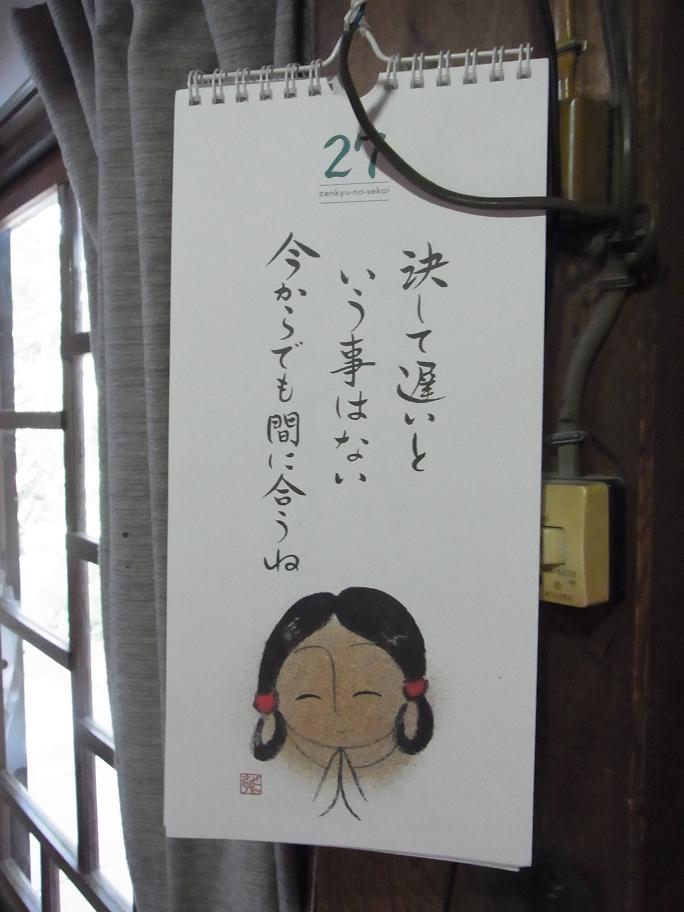 27
zenkyu-no-sekai
決して遅いと
いう事はない
今からでも間に合うね